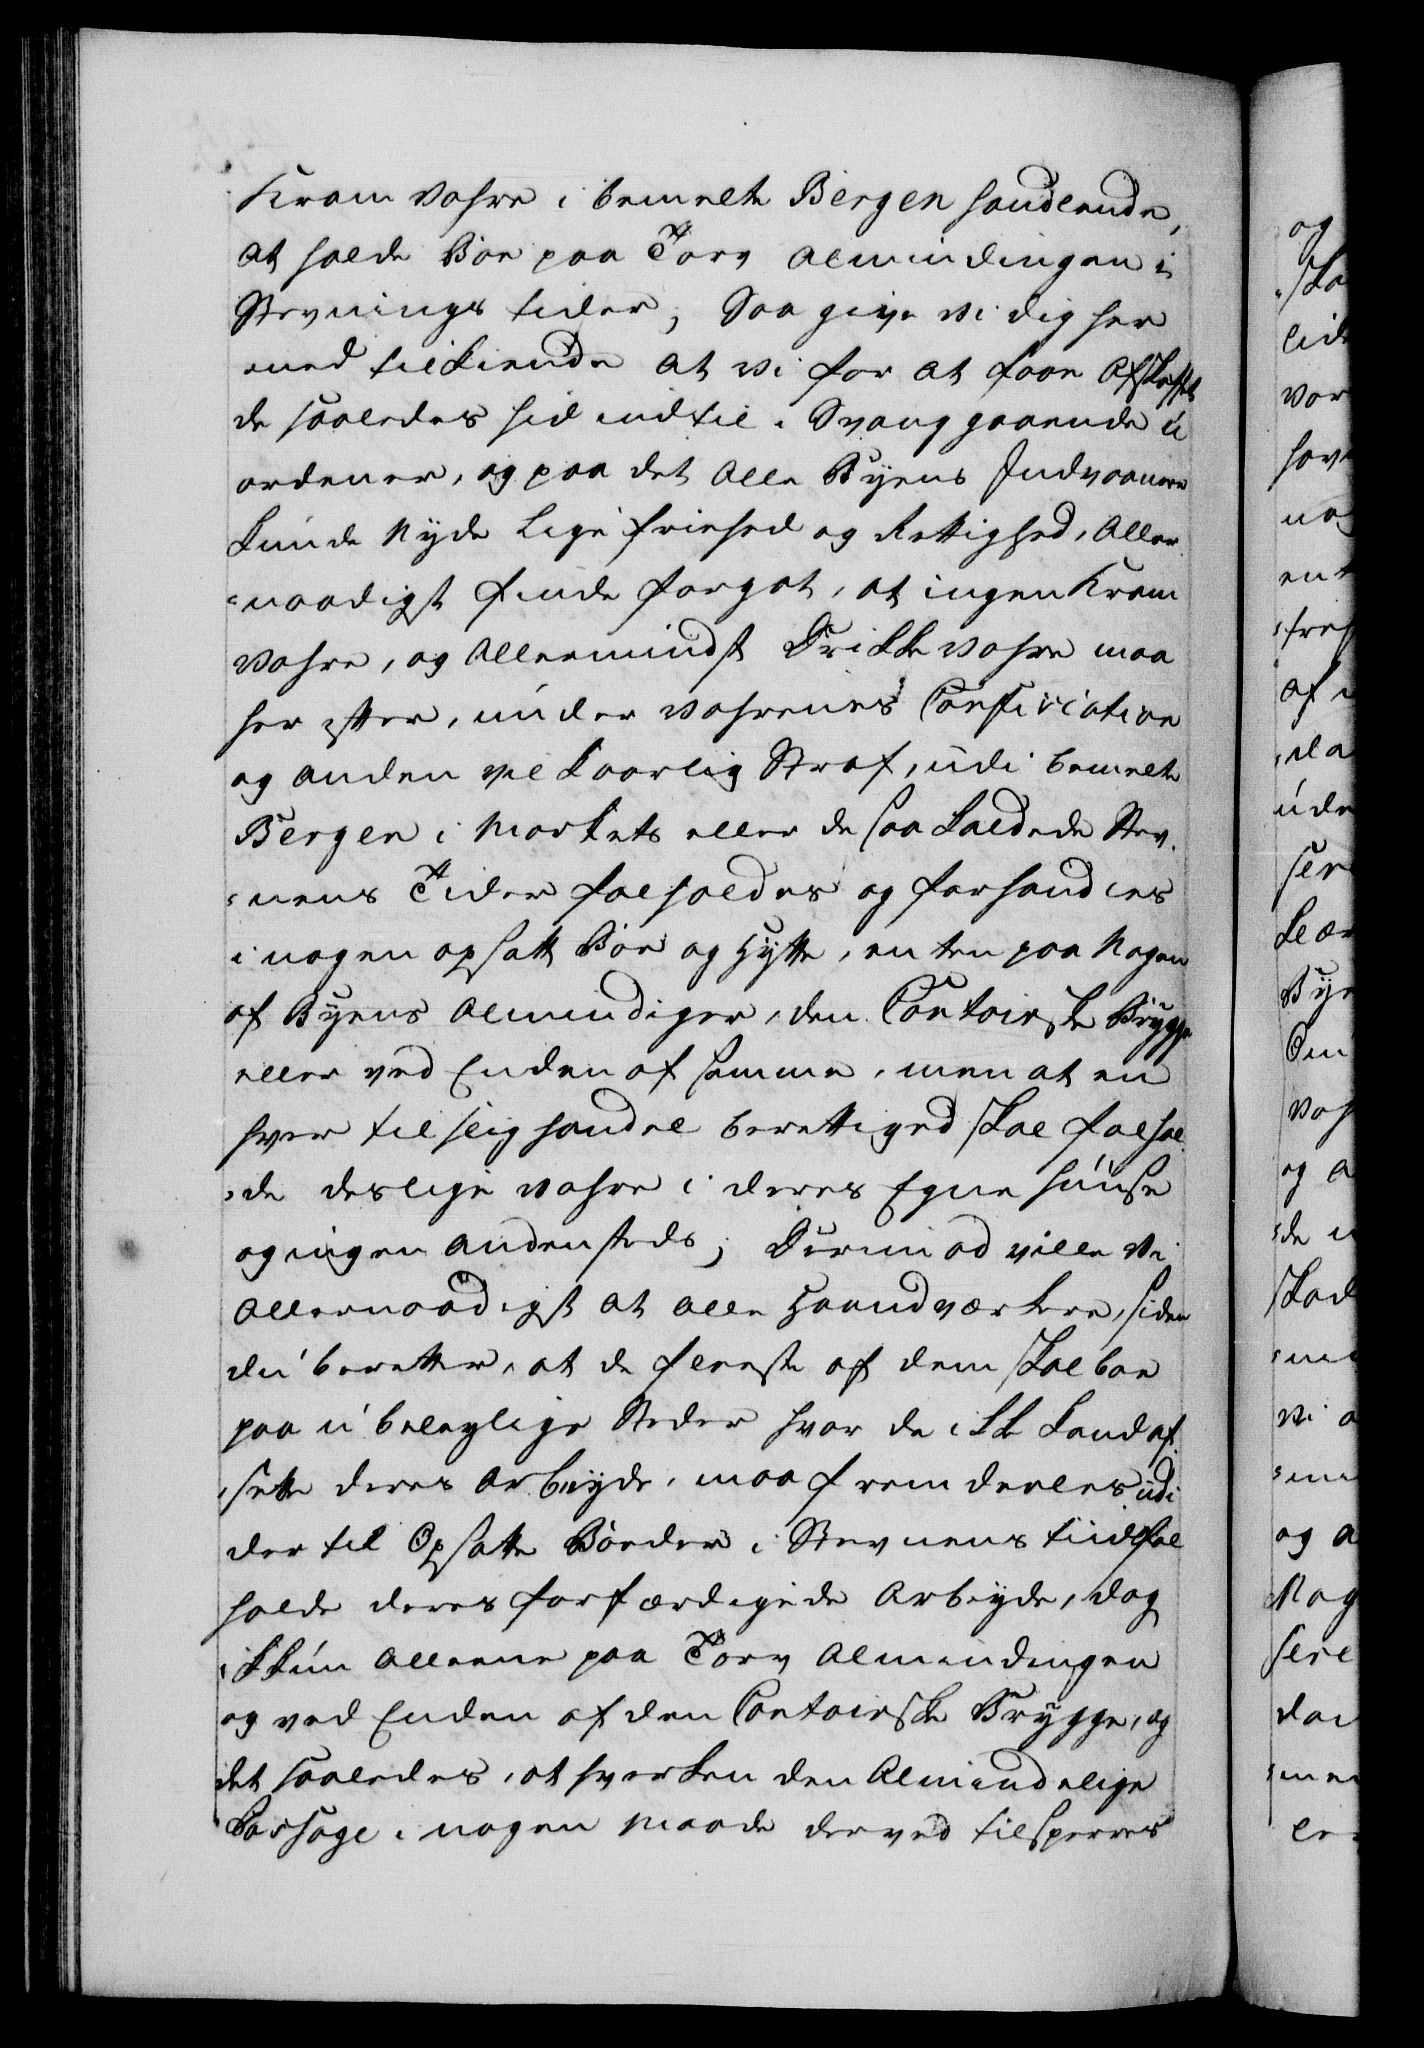 Kram Vahre i bemelte Bergen handlende,
at holde Boe paa Torv Almindingen i
Stevnings tider; Saa give vi dig her
med tilkiende at vi for at faae Afskaffet
de saaledes hid indtil i Svang gaaende ú
ordener, og paa det alle Byens Indvaanere
kunde Nyde Lige friehed og Rettighed, Aller
=naadigst finde forgot, at ingen Kram
Vahre, og Allermindst Drikke Vahre maa
her efter, under Vahrenes Confiscation
og anden vilkaarlig Straf, udi bemelte
Bergen i Markets eller de saa kaldede Stev
=nens Tider falholdes og forhandles
i nogen opsatt Boe og Hytte, enten paa Nogen
af Byens Almindiger, den Contoirske Brygge
eller ved Enden af samme, men at en
hver til slig handel berettiged skal falhol
=de deslige Vahre i deres Egne Huuse
og ingen andensteds; Derimod ville Vi
Allernaadigst at alle Haandværkere, siden
du beretter, at de fleeste af dem skal boe
paa ubeleylige Steder hvor de ikke kand af
=sette deres Arbeyde, maa fremdeeles udi
der til Opsatte Boeder i Stevnens tiid fal
holde deres forfærdigede Arbeyde, dog
ikkun alleene paa Torv Almindingen
og ved Enden af den Contoirske Brygge, og
det saaledes, at hverken den Almindelige
Passage i nogen Maade derved tilsperres